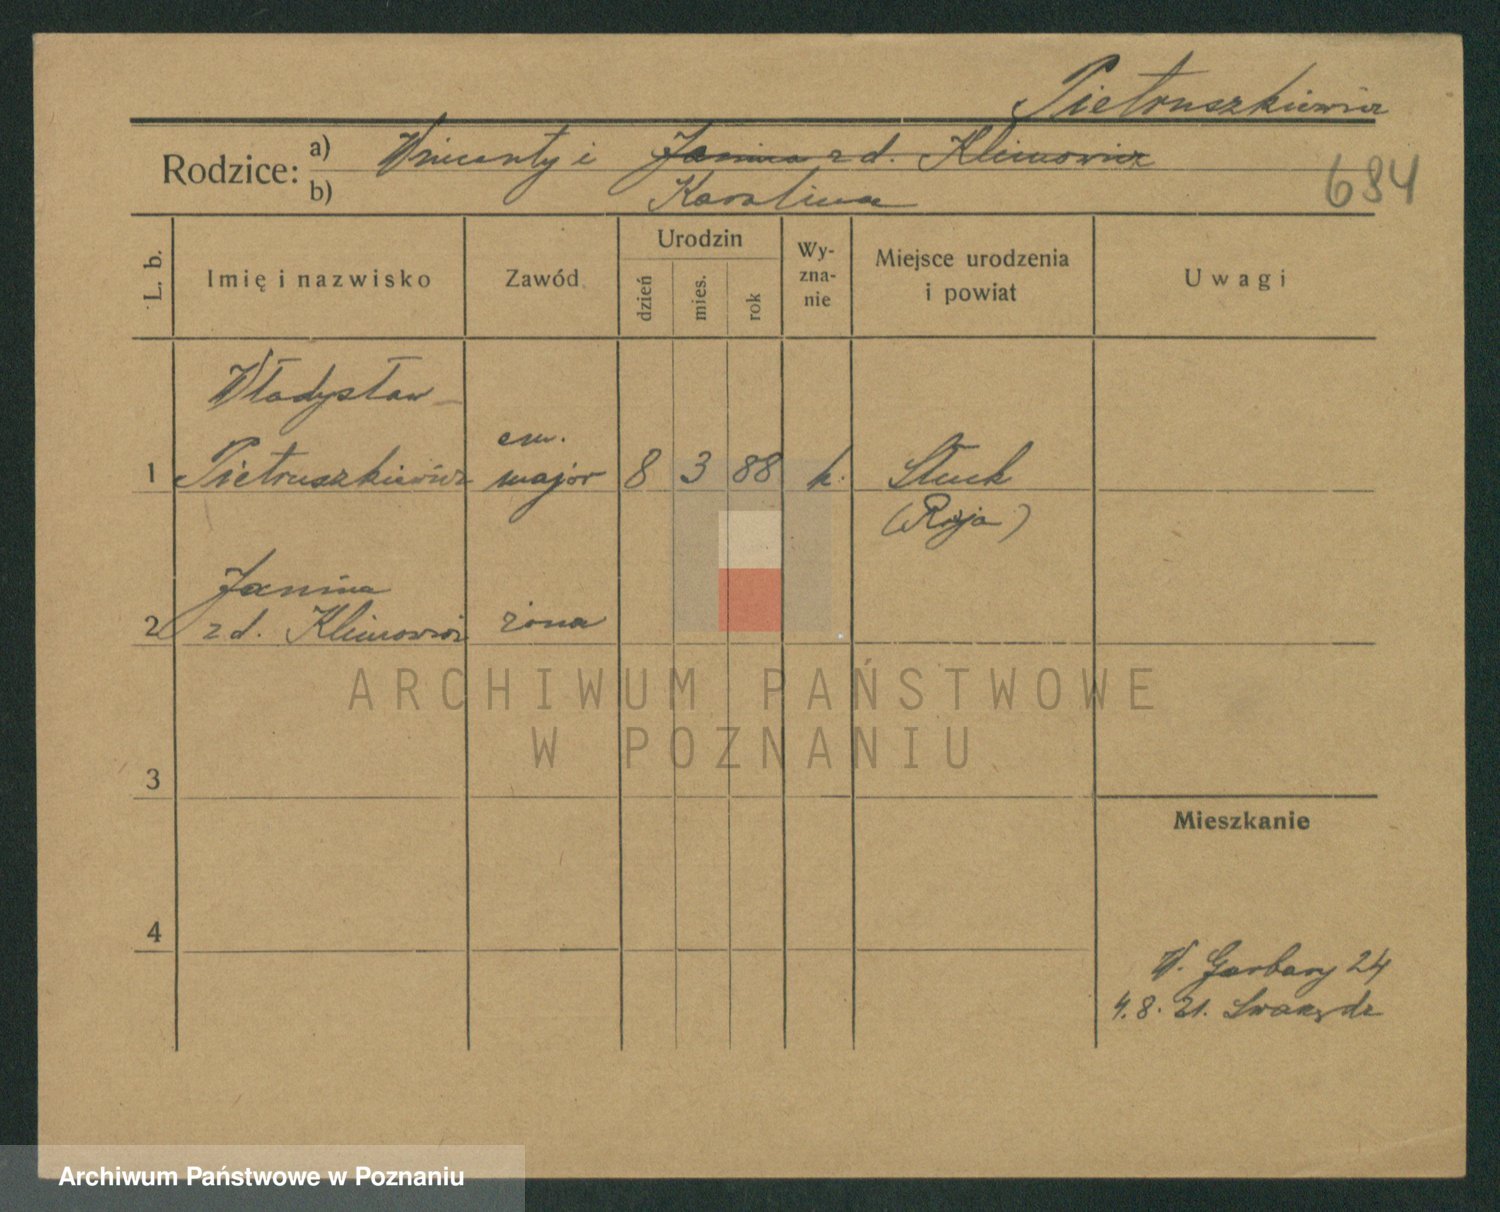 Pietruszkiewicz
Rodzice: a) Wincenty i Janina z d. Klimowicz
b) Karolina
684
L. b. Imię i nazwisko Zawód Urodzin dzień mies. rok Wy-zna-nie Miejsce urodzenia i powiat Uwagi
Władysław
1 Pietruszkiewicz em. major 8 3 88 k. Słuck
(Rosja)
Janina
2 z d. Klimowicz żona
ARCHIWUM PAŃSTWOWE
W POZNANIU
3
Mieszkanie
4
W. Garbary 24
4. 8. 21.
Archiwum Państwowe w Poznaniu